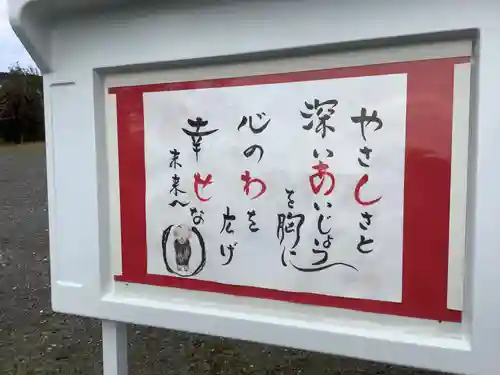 やさしさと
深いあいじょう
を胸に
心のわを
広げ
幸せな
未来へ